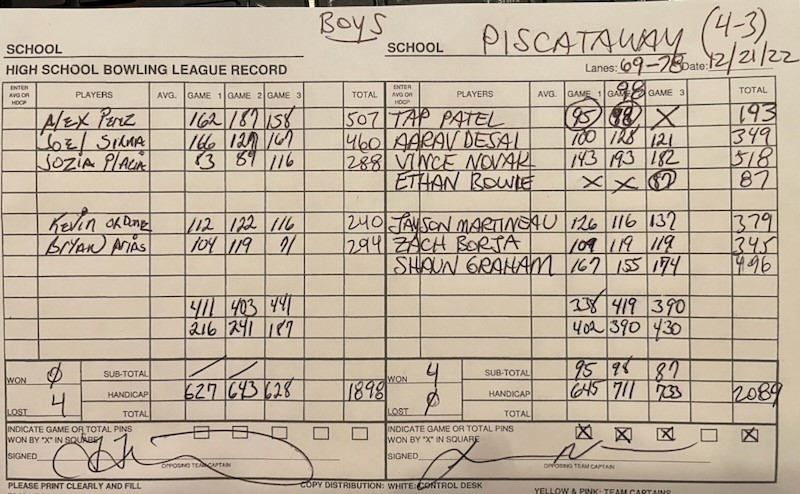 BOYS
SCHOOL SCHOOL PISCATAWAY (4-3)
HIGH SCHOOL BOWLING LEAGUE RECORD Lanes: 69-78 Date: 12/21/22
98
ENTER AVG OR HDCP PLAYERS AVG. GAME 1 GAME 2 GAME 3 TOTAL ENTER AVG OR HDCP PLAYERS AVG. GAME 1 GAME 2 GAME 3 TOTAL
Alex Perz 162 187 158 507 TAP PATEL 95 98 X 193
166 127 167 460 AARAV DESAI 100 128 121 349
83 89 116 288 VINCE NOVAK 143 193 182 518
ETHAN BOWIE X X 87 87
Kevin 112 122 116 240 JAYSON MARTINEAU 126 116 137 379
Bryan Arias 104 119 71 294 ZACH BORJA 109 119 119 345
SHAUN GRAHAM 167 155 174 496
411 403 441 338 419 390
216 241 187 402 390 430
WON 0 SUB-TOTAL WON 4 SUB-TOTAL 95 98 87
HANDICAP 627 643 628 1898 HANDICAP 645 711 733 2089
LOST 4 TOTAL LOST 0 TOTAL
INDICATE GAME OR TOTAL PINS INDICATE GAME OR TOTAL PINS
WON BY "X" IN SQUARE WON BY "X" IN SQUARE X X X X
SIGNED SIGNED
OPPOSING TEAM CAPTAIN OPPOSING TEAM CAPTAIN
PLEASE PRINT CLEARLY AND FILL COPY DISTRIBUTION: WHITE: CONTROL DESK
YELLOW & PINK: TEAM CAPTAINS